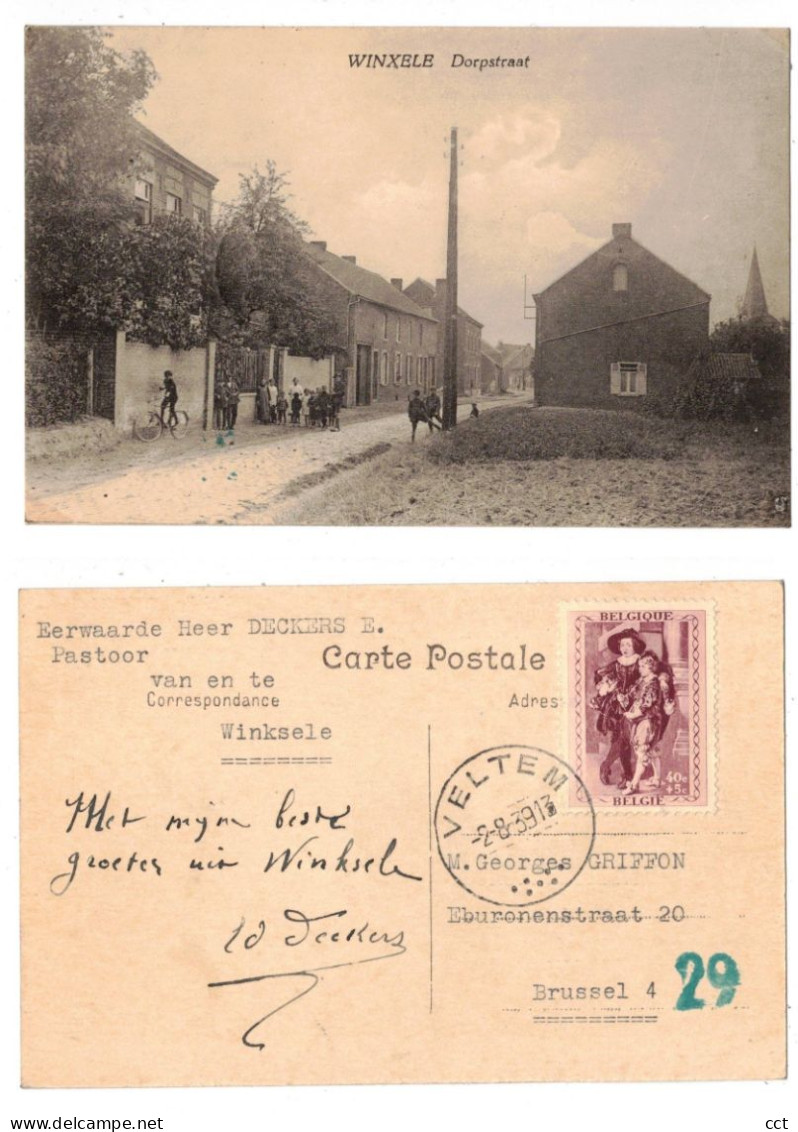 WINXELE Dorpstraat
Eerwaarde Heer DECKERS E.
Pastoor
van en te
Carte Postale
Correspondance
Adres
Winksele
BELGIQUE
40c
+5c
BELGIË
VELTEM
-2-8-39 13
Met mijn beste
groeten uit Winksele
Ed Deckers
M. Georges GRIFFON
Eburonenstraat 20
Brussel 4
29
www.delcampe.net
cct